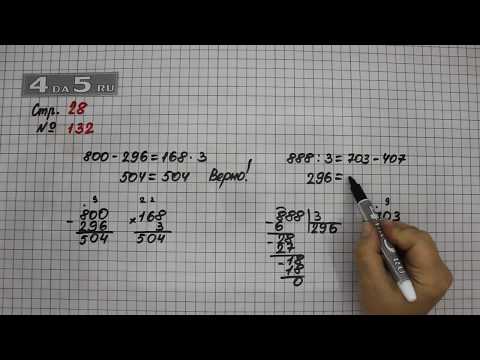 4 DA 5 RU
Стр. 28
№ 132
800 - 296 = 168 · 3
504 = 504 Верно!
888 : 3 = 703 - 407
296 =
9
- 800
296
504
2 2
× 168
3
504
- 888 | 3
6 | 296
- 28
27
- 18
18
0
9
703